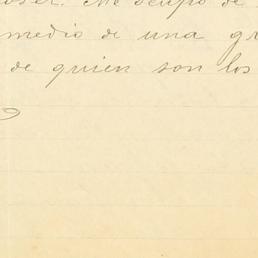 Me ocupo de
medio de una
de quien son los